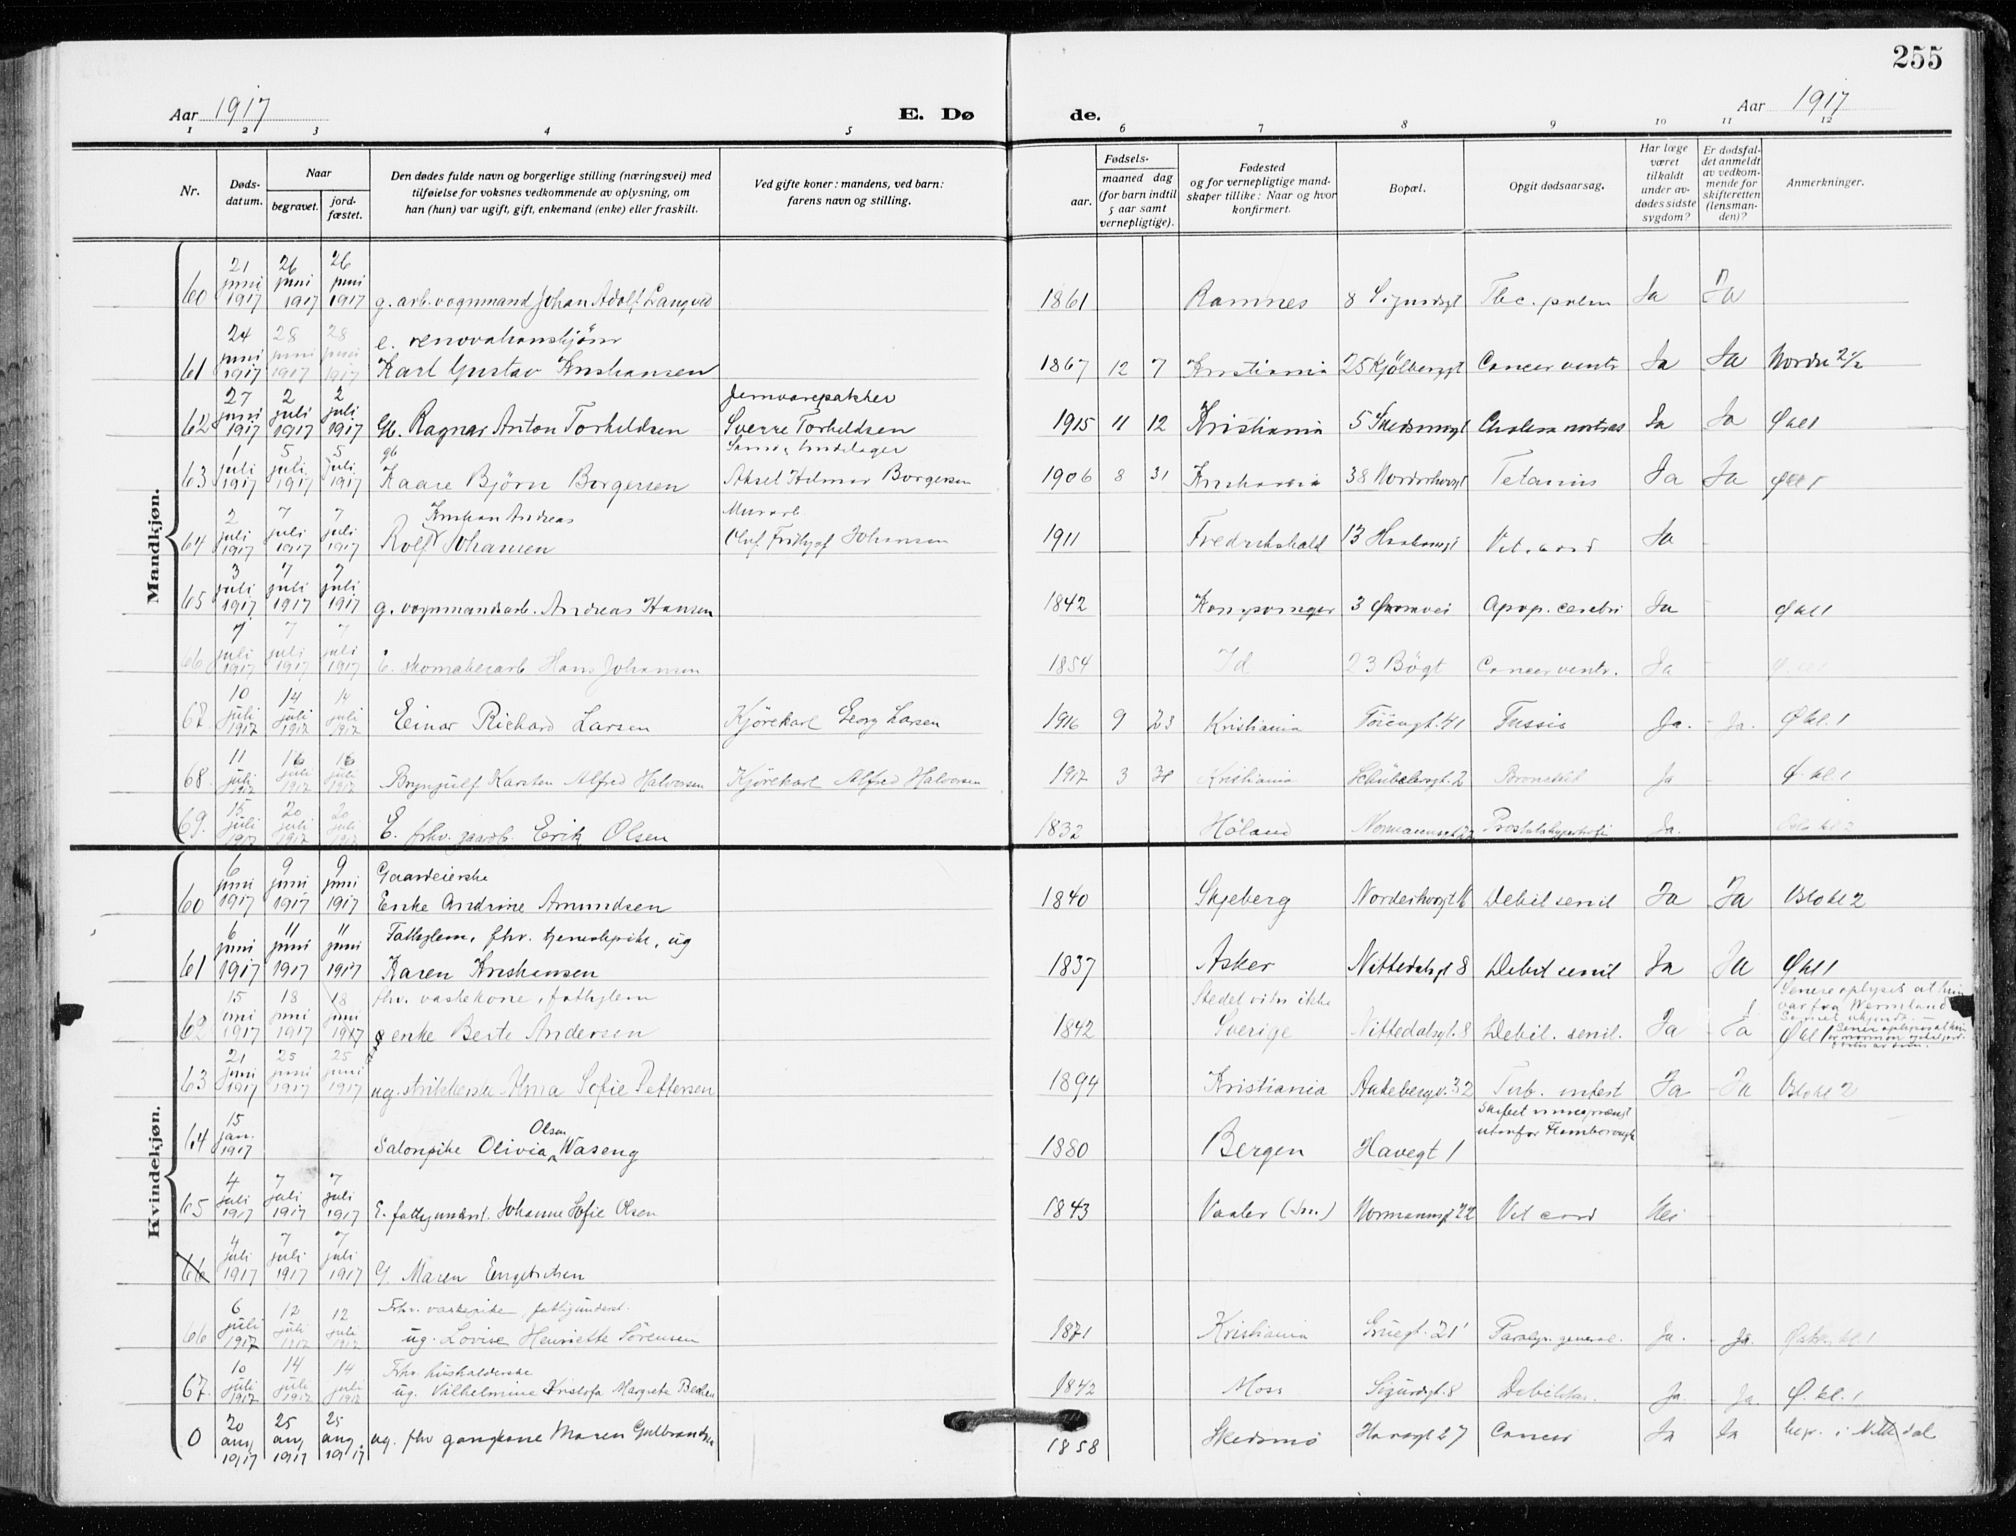 255
Aar 1917 E. Dø de. Aar 1917
1 2 3 4 5 6 7 8 9 10 11 12
Nr.
Døds-
datum.
Naar
begravet.
jord-
fæstet.
Den dødes fulde navn og borgerlige stilling (næringsvei) med
tilføielse for voksnes vedkommende av oplysning, om
han (hun) var ugift, gift, enkemand (enke) eller fraskilt.
Ved gifte koner: mandens, ved barn:
farens navn og stilling.
Fødsels-
aar.
maaned dag
(for barn indtil
5 aar samt
vernepligtige).
Fødested
og for vernepligtige mand-
skaper tillike: Naar og hvor
konfirmert.
Bopæl.
Opgit dødsaarsag.
Har læge
været
tilkaldt
under av-
dødes sidste
sygdom?
Er dødsfal-
det anmeldt
av vedkom-
mende for
skifteretten
(lensman-
den)?
Anmerkninger.
Mandkjøn.
21 26 26
juni juni juni
60 1917 1917 1917 g. arb. vognmand Johan Adolf Langved 1861 Ramnes 8 Sigurdsgt Tbc. pulm Ja Ja
24 28 28 e. renovationskjører
juni juni juni
61 1917 1917 1917 Karl Gustav Kristiansen 1867 12 7 Kristiania 25 Kjølberggt Cancer ventr Ja Ja Nordre
27 2 2 Jernvarepakker
juni juli juli
62 1917 1917 1917 Gb. Ragnar Anton Torkildsen Sverre Torkildsen 1915 11 12 Kristiania 5 Skedsmogt Cholera nostras Ja Ja Ø kl 1
1 5 5 gb
juli juli juli
63 1917 1917 1917 Kaare Bjørn Borgersen Aksel Hilmar Borgersen 1906 8 31 Kristiania 38 Norderhovgt Tetanus Ja Ja Ø kl 1
2 7 7 Kristian Andreas Murarb
juli juli juli
64 1917 1917 1917 Rolf Johansen Oluf Fridtjof Johansen 1911 Fredrikshald 13 Vit. cord Ja
3 7 7
juli juli juli
65 1917 1917 1917 g. vognmandsarb. Andreas Hansen 1842 Kongsvinger 3 Apop. cerebri Ja - Ø kl 1
7 7 7
juli juli juli
66 1917 1917 1917 E. skomakerarb Hans Johansen 1854 Id 23 Bøgt Cancer ventr. Ja -
10 14 14
juli juli juli
67 1917 1917 1917 Einar Richard Larsen Kjørekarl Georg Larsen 1916 9 23 Kristiania Tøiengt. 41 Tussis Ja. - Ja. Ø kl. 1
11 16 16
juli juli juli
68. 1917 1917 1917 Brynjulf Karsten Alfred Halvorsen Kjørekarl Alfred Halvorsen 1917 3 Kristiania Schübelersgt. 2 Ja - Ø. kl. 1
15 20 20
juli juli juli
69. 1917 1917 1917 E. fhv. gaardb. Erik Olsen 1832 Høland Normannsgt 22 Ja. Oslo kl 2
Kvindekjøn.
6 9 9 Gaardeierske
juni juni juni
60 1917 1917 1917 Enke Andrine Amundsen 1840 Skjeberg Norderhovgt 16 Debil. senil Ja Ja Oslo kl 2
6 11 11 Fattiglem, fhv. tjenestepike, ug
juni juni juni
61 1917 1917 1917 Karen Kristiansen 1837 Asker Nittedalsgt 8 Debil senil Ja Ja Ø kl 1
15 18 18 fhv. vaskekone, fattiglem Stedet vites ikke Senere oplyset at hun
juni juni juni var fra Wermland
62 1917 1917 1917 enke Berte Andersen 1842 Sverige Nittedalsgt. 8 Debil. senil. Ja - Ja Ø kl 1
21 25 25
juni juni juni
63 1917 1917 1917 ug. strikkerske Alma Sofie Pettersen 1894 Kristiania Akebergv. 32 Tub. intest Ja - Ja Oslo kl 2
15 Olsen
jan. utenfor Flamborough
64 1917 Salonpike Olivia Waseng 1880 Bergen Havegt 1
4 7 7
juli juli juli
65 1917 1917 1917 E. fattigunderst. Johanne Sofie Olsen 1843 Vaaler (Sm.) Normannsgt 22 Vit cord Nei
4 7 7
juli juli juli
66 1917 1917 1917 G. Maren Engebretsen
6 12 12 Fhv. vaskepike, fattigunderst.
juli juli juli
66 1917 1917 1917 ug. Lovise Henriette Sørensen 1871 Kristiania Gruegt. 21 Paralys. general. Ja. - Ja. Østre. kl. 1
10 14 14 Fhv. husholderske
juli juli juli
67. 1917 1917 1917 ug. Vilhelmine Kristofa Margrete Becken 1842 Moss Sigurdsgt. 8 Ja - Ja. Ø. kl. 1
20 25 25
aug aug aug.
0 1917 1917 1917 ug. fhv gangkone Maren Gulbrandsen 1858 Skedsmo Havegt 27 Cancer Ja Ja begr. i Nittedal